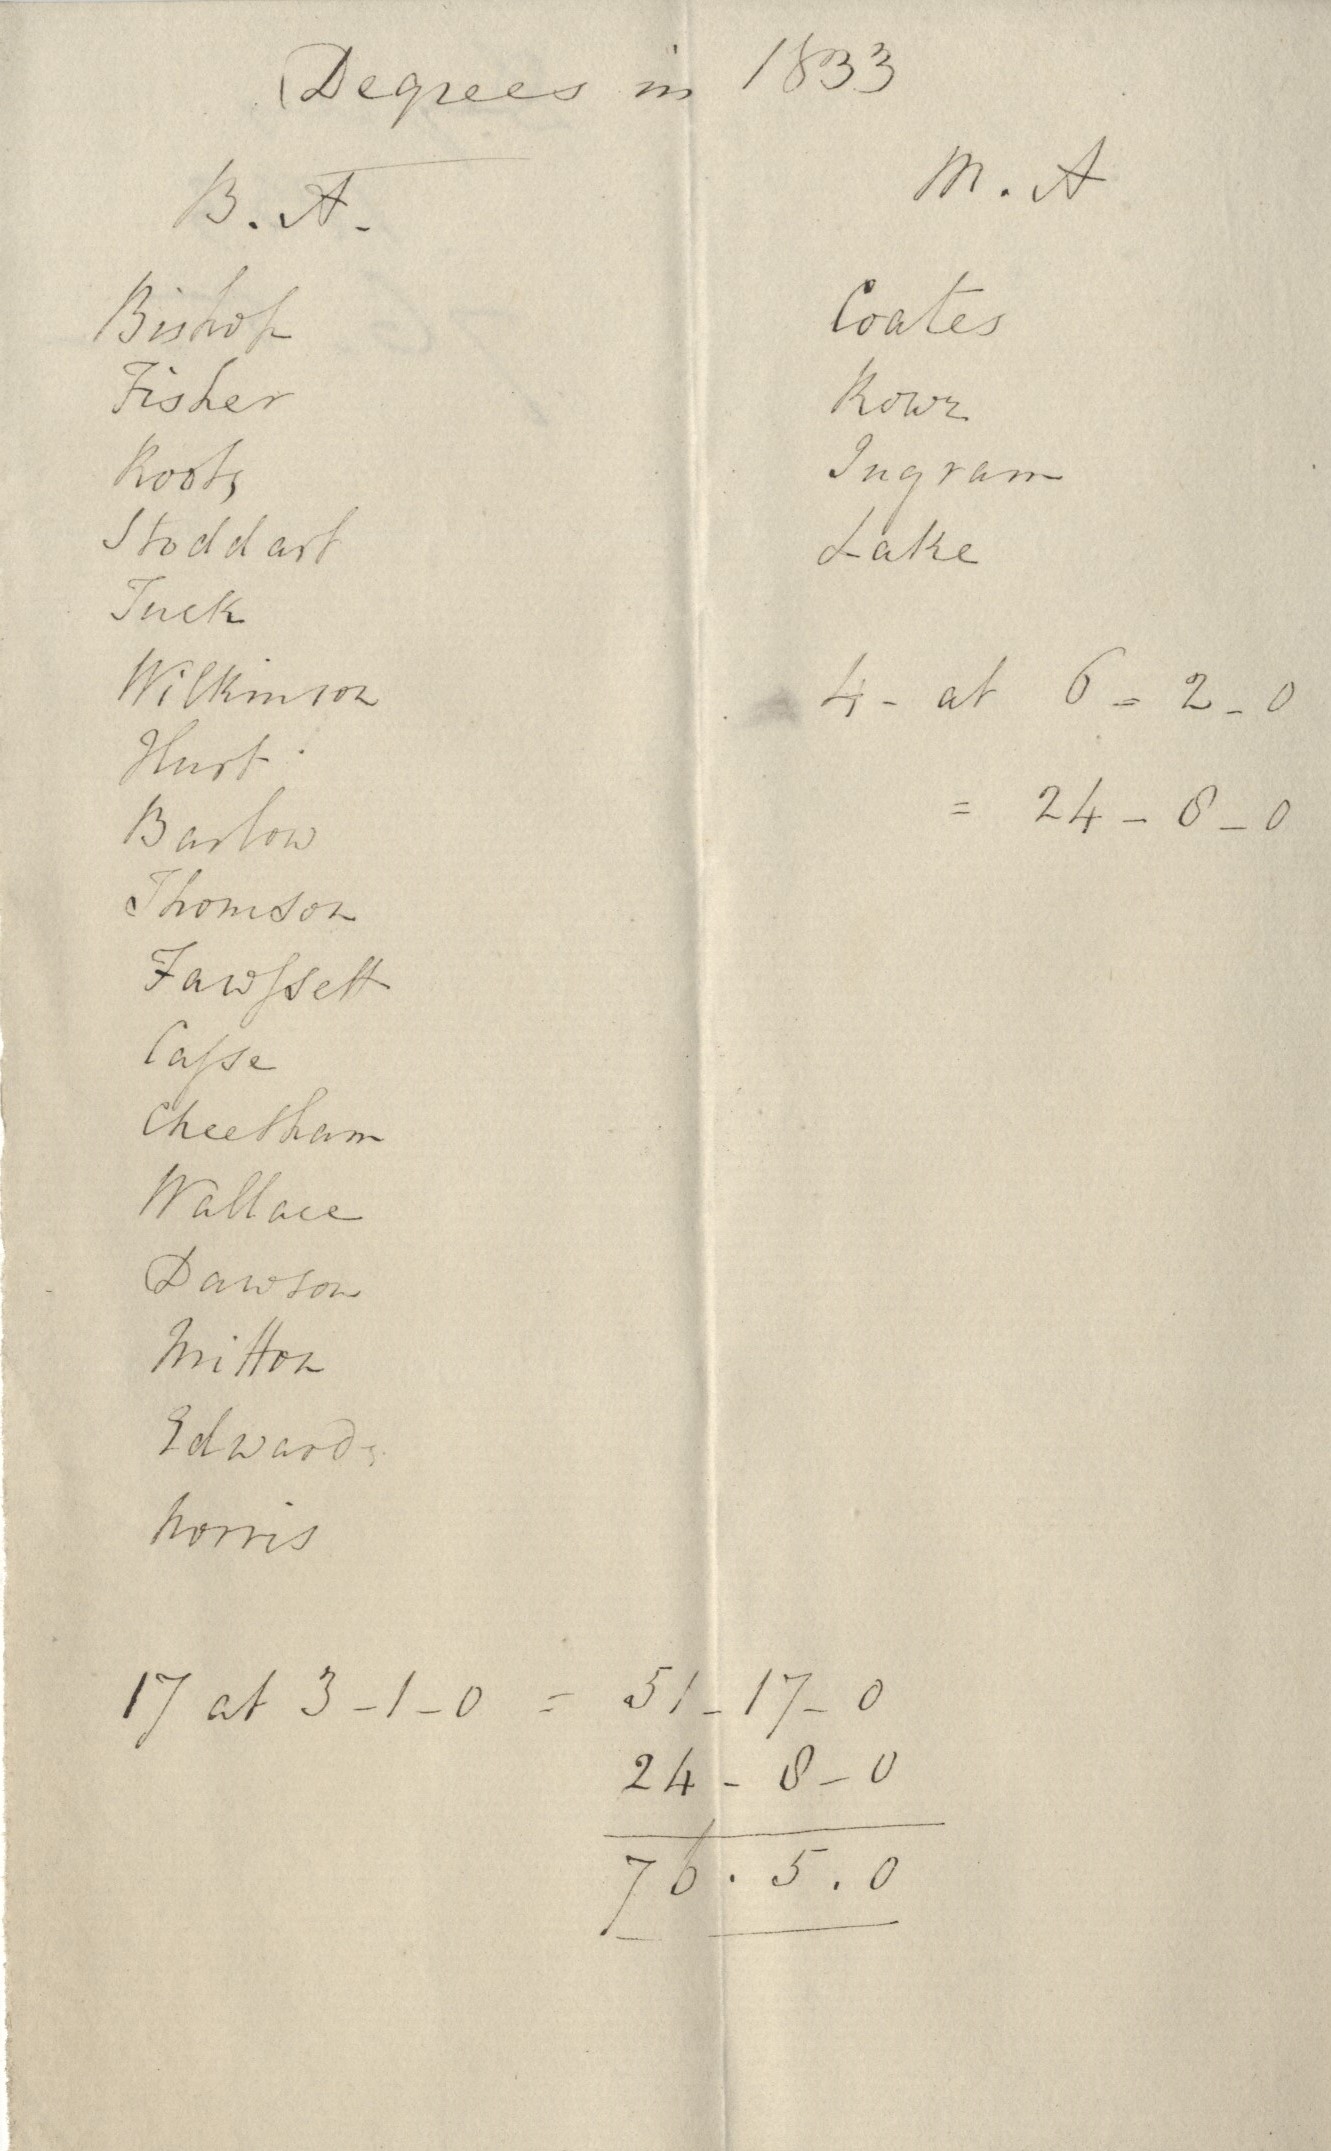 Degrees in 1833
B. A.
Bishop
Fisher
Roots
Stoddart
Tuck
Wilkinson
Hurt
Barlow
Thomson
Fawssett
Casse
Cheetham
Wallace
Dawson
Mitton
Edwards
Norris
M. A
Coates
Ingram
Lake
4 - at 6 = 2 - 0
= 24 - 8 - 0
17 at 3 - 1 - 0 = 51 - 17 - 0
24 - 8 - 0
76 . 5 . 0